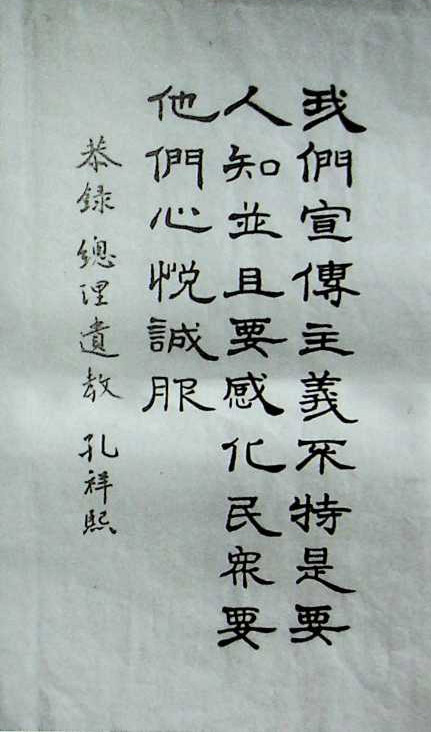 我們宣傳主義不特是要
人知並且要感化民眾要
他們心悅誠服
恭錄 總理遺教 孔祥熙